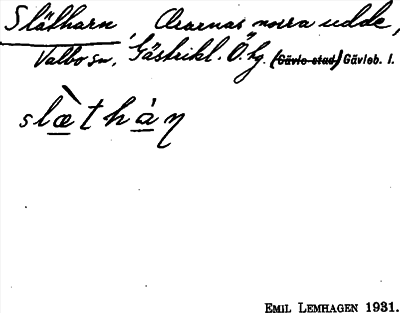 Slätharn, Orarnas norra udde,
Valbo sn, Gästrikl. Ö. hg. (Gävle stad) Gävleb. l.
slæ̀thȧn
EMIL LEMHAGEN 1931.